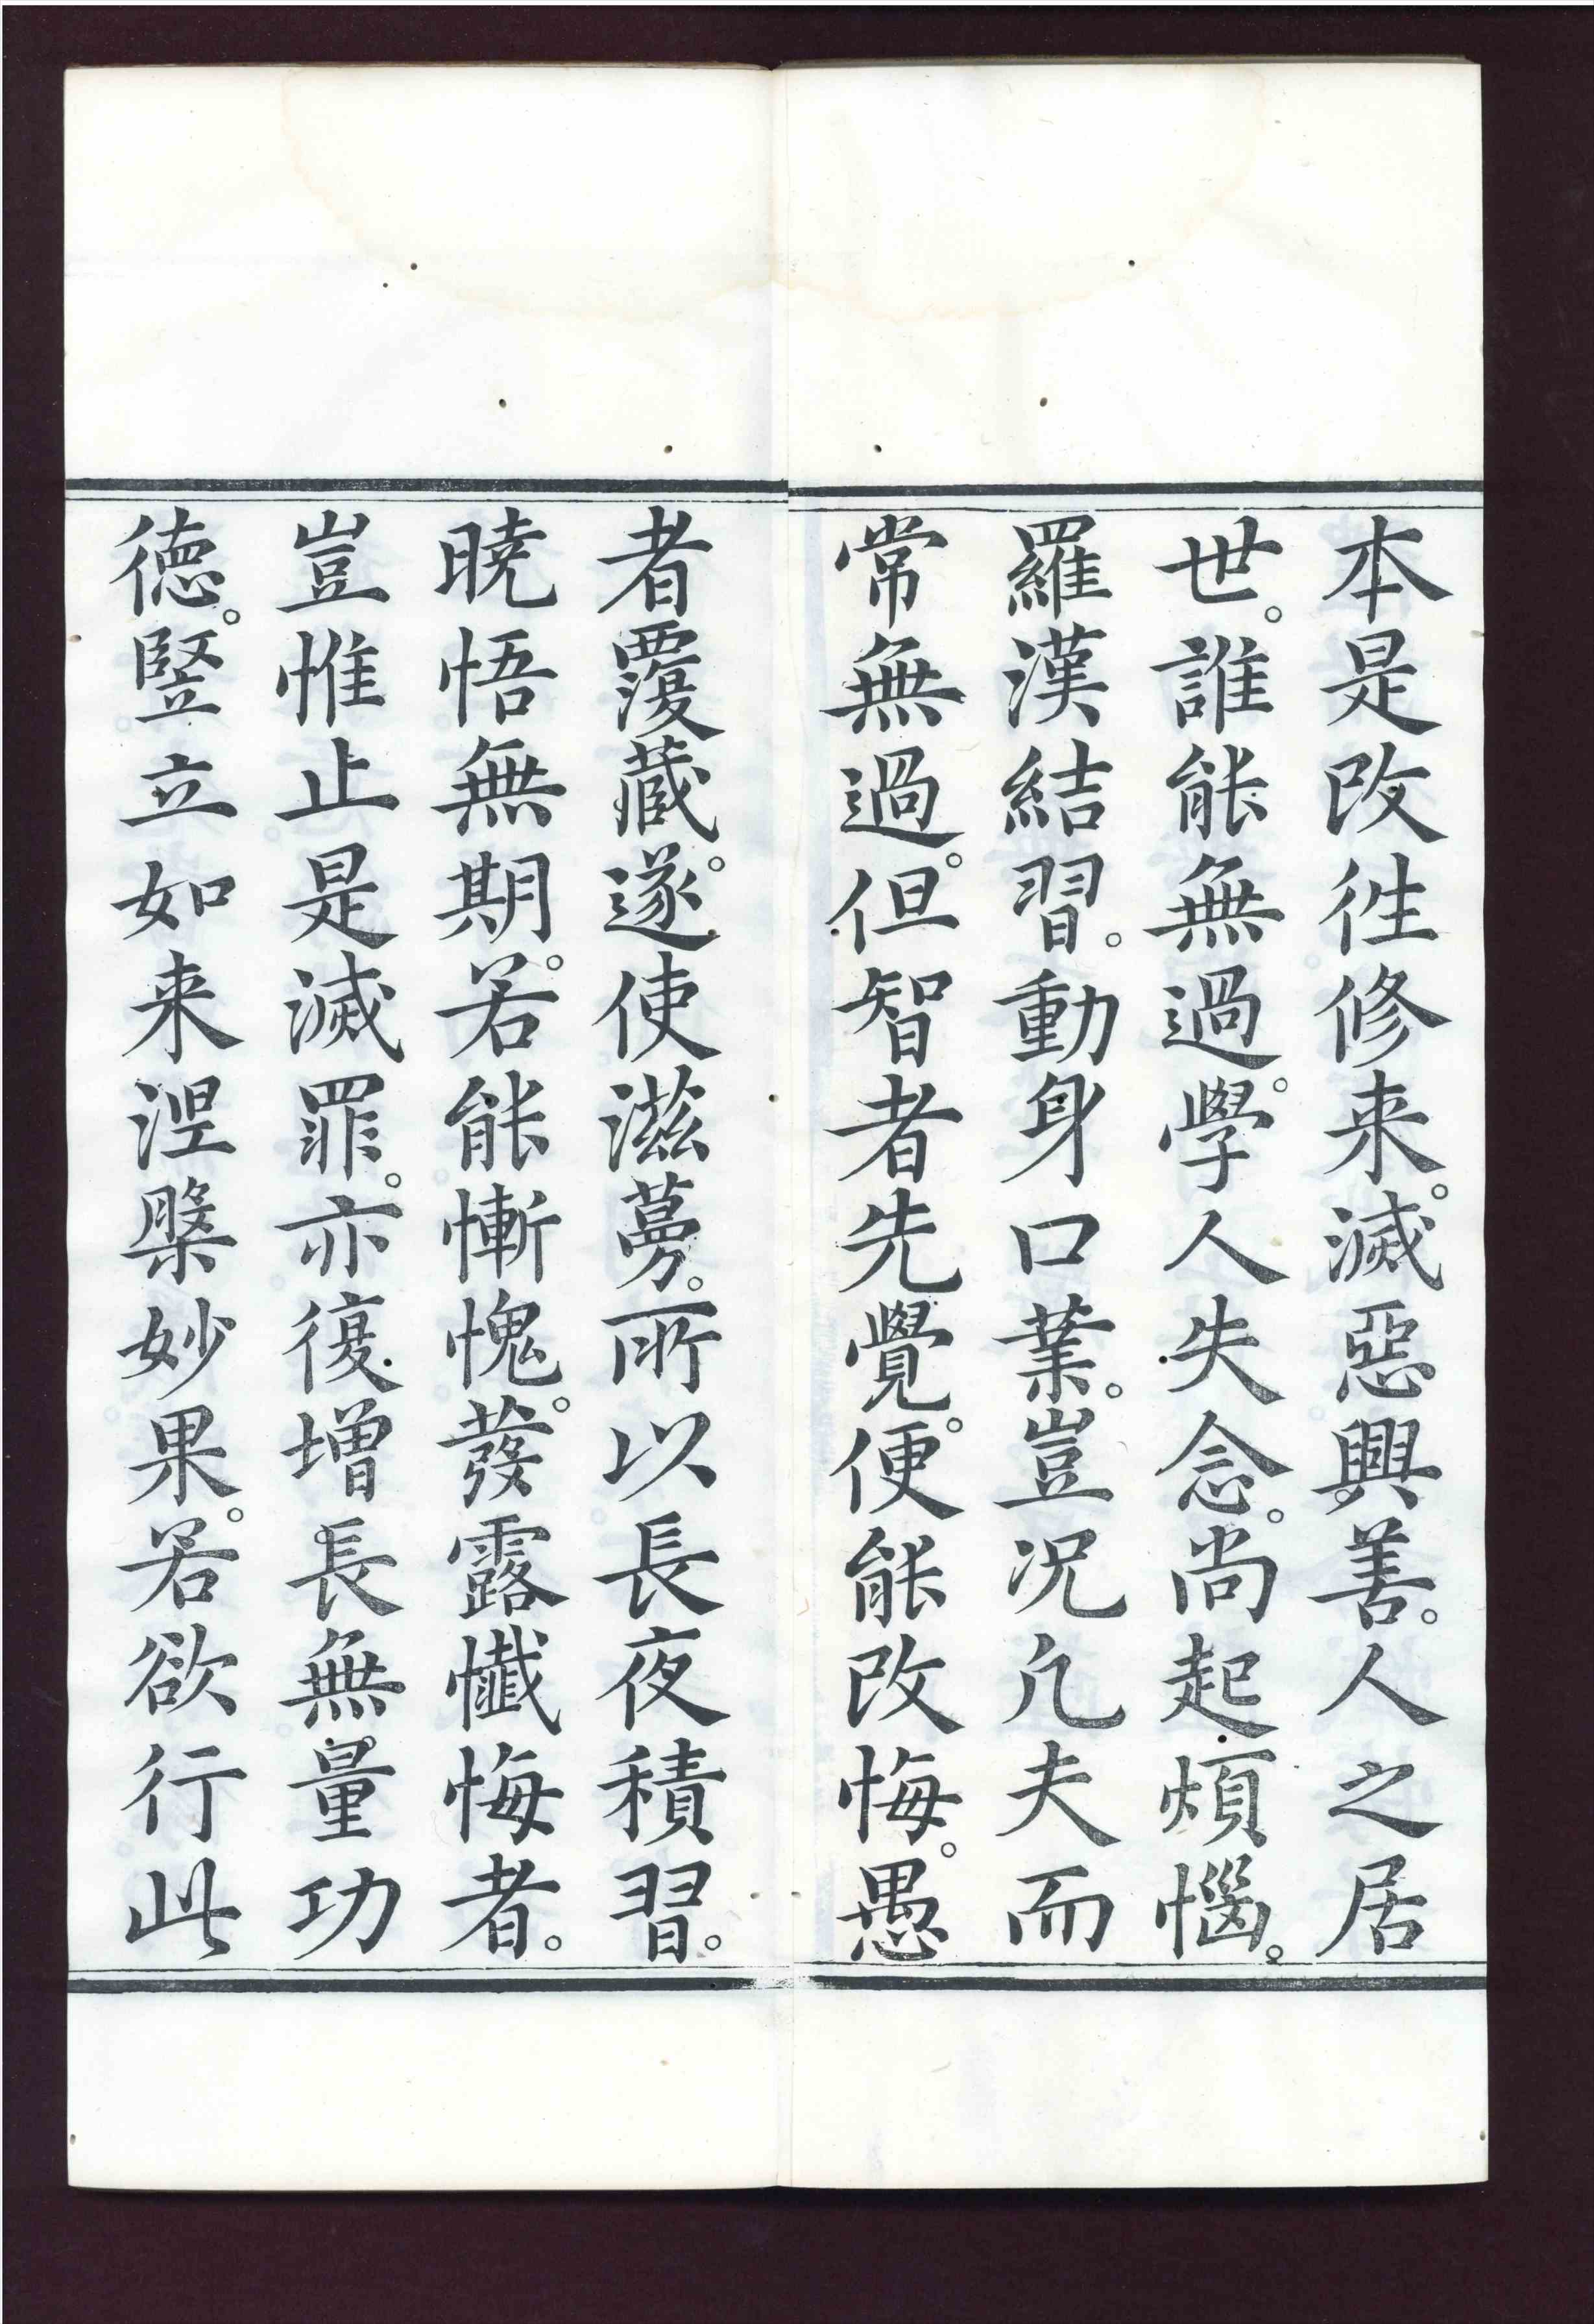 本是改往修来。滅惡興善。人之居
世。誰能無過。學人失念。尚起煩惱。
羅漢結習。動身口業。豈况凡夫而
常無過。但智者先覺。便能改悔。愚
者覆藏。遂使滋蔓。所以長夜積習。
曉悟無期。若能慚愧。發露懺悔者。
豈惟止是滅罪。亦復增長無量功
德。竪立如来涅槃妙果。若欲行此